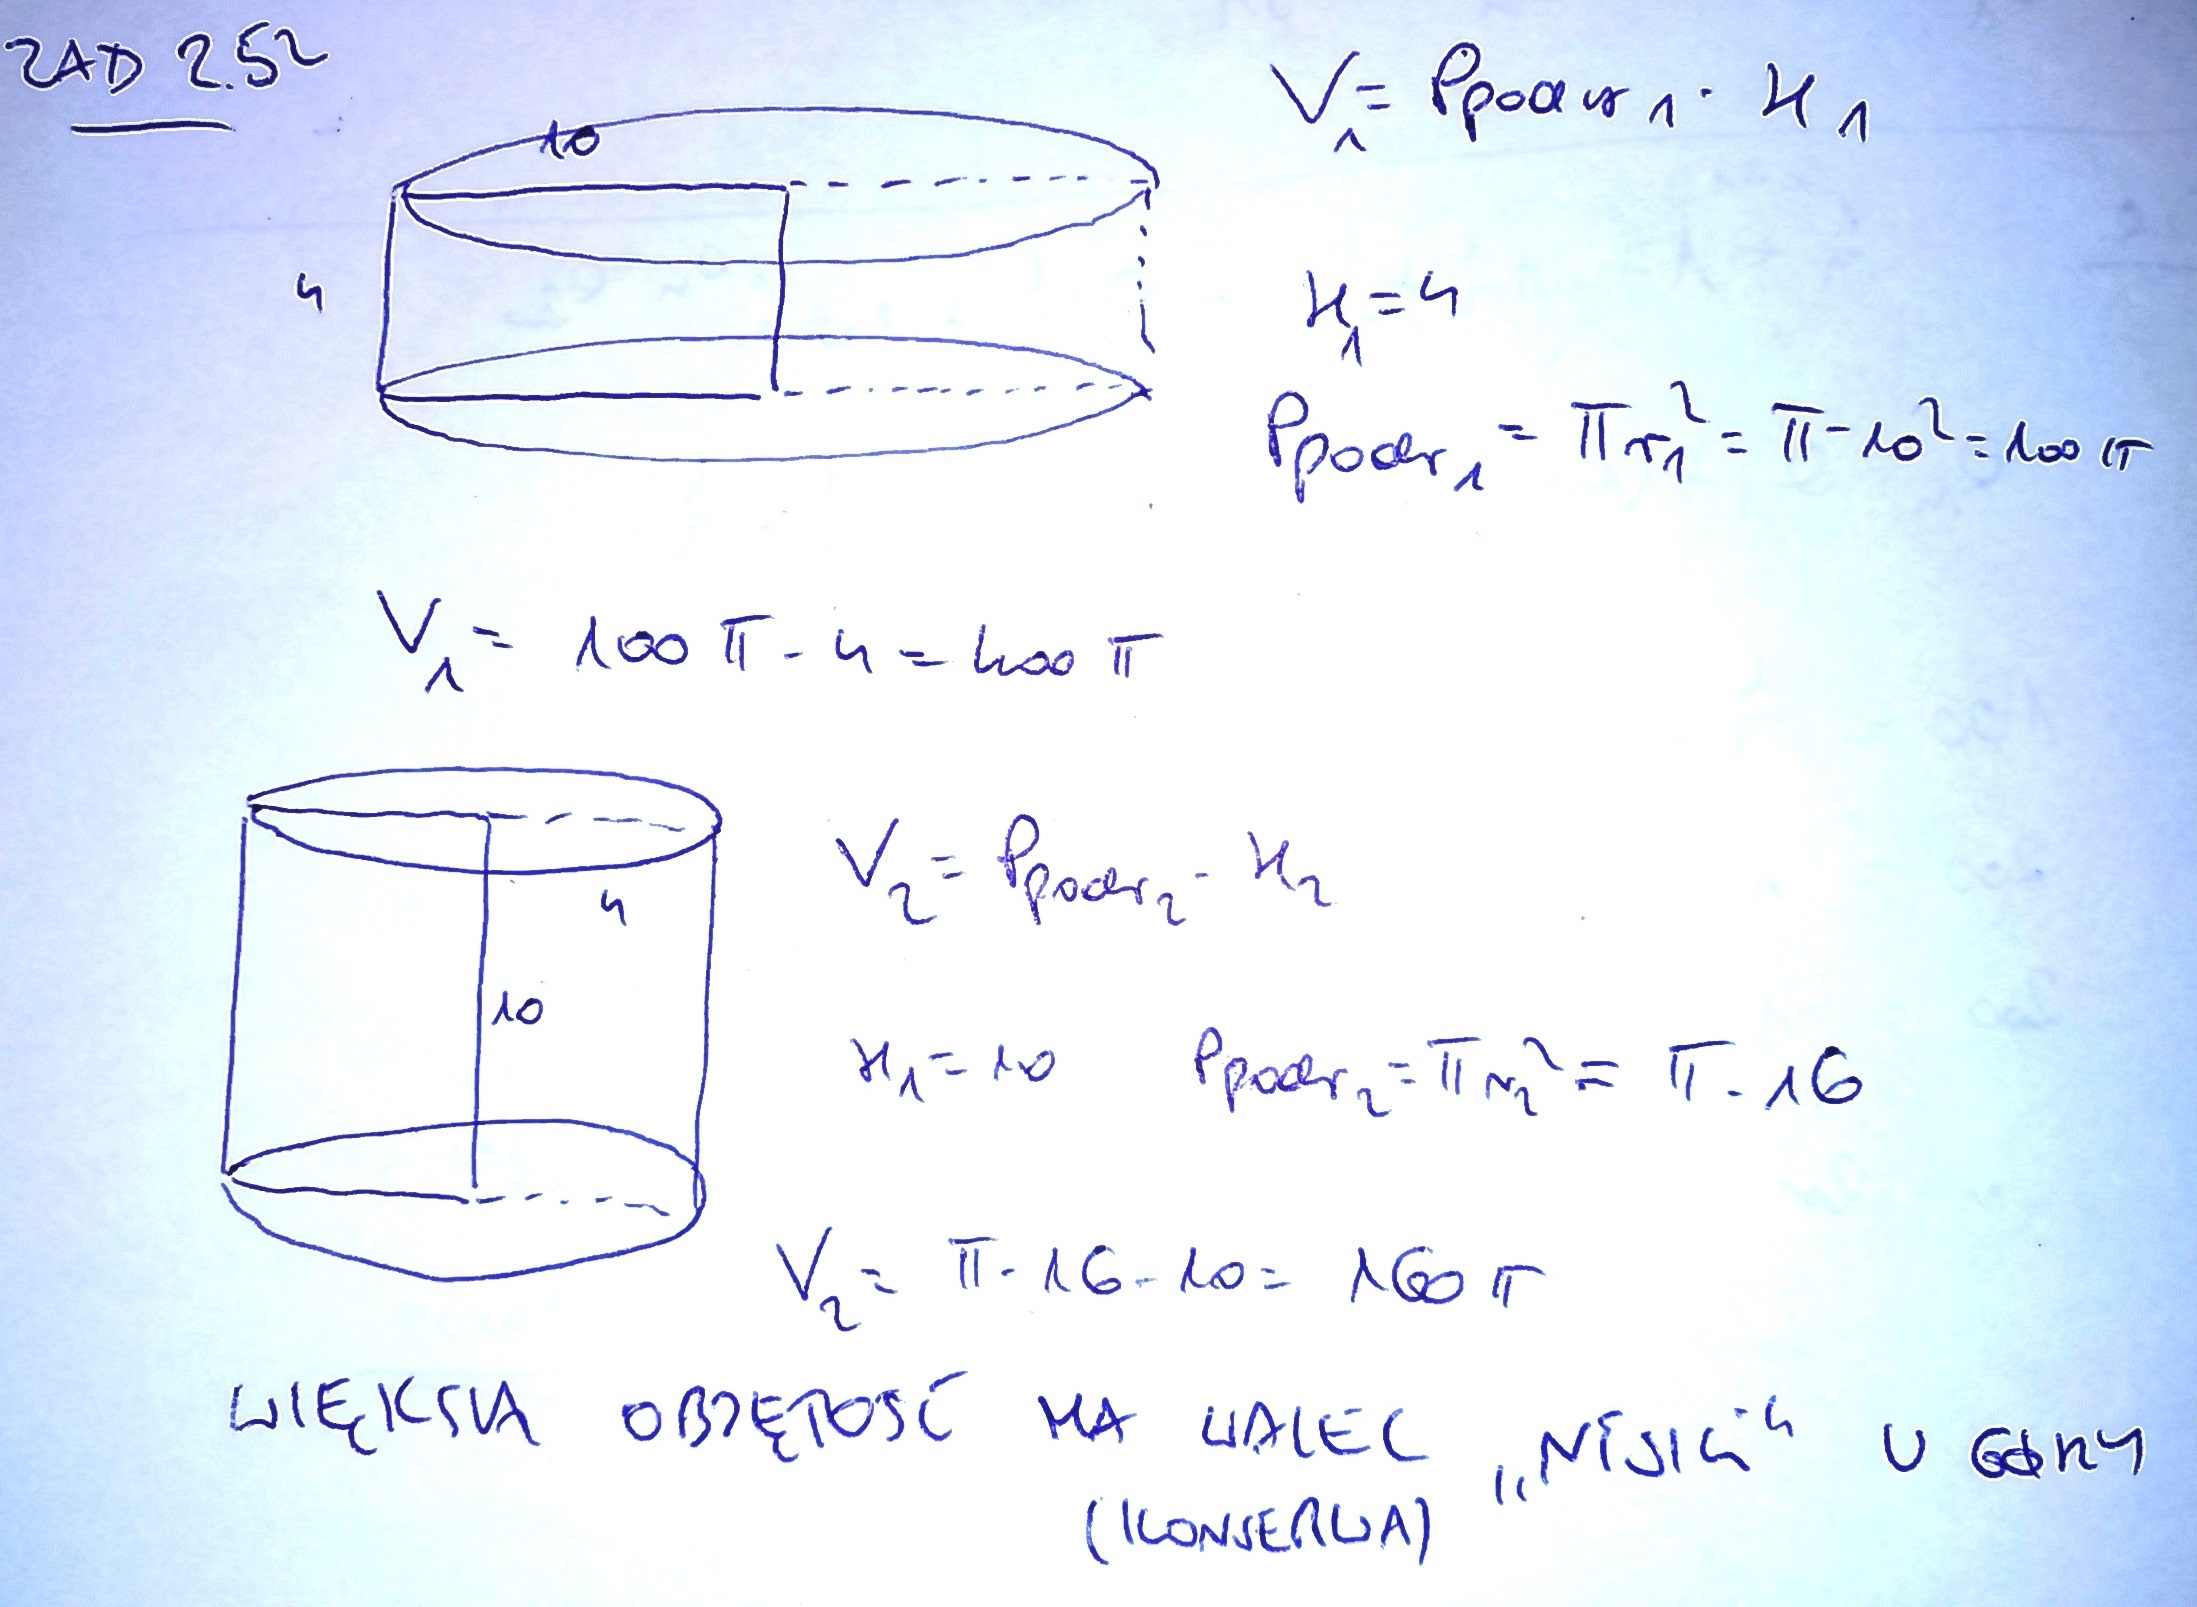 ZAD 2.52
10
V₁ = Ppodst₁ · H₁
4
H₁ = 4
Ppodst₁ = πr₁² = π · 10² = 100π
V₁ = 100π · 4 = 400π
4
10
V₂ = Ppodst₂ · H₂
H₁ = 10 Ppodst₂ = πr₂² = π · 16
V₂ = π · 16 · 10 = 160π
WIĘKSZĄ OBJĘTOŚĆ MA WALEC „NISKI” U GÓRY
(KONSERWA)